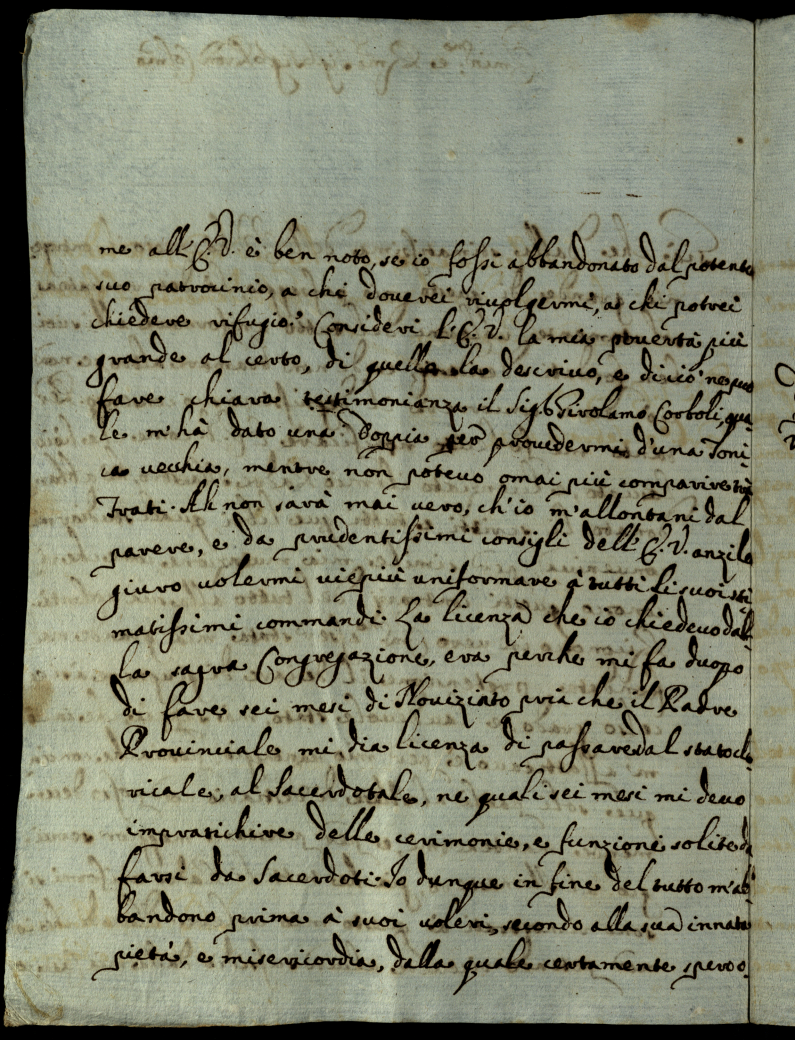 me all'E.V. è ben noto, se io fossi abbandonato dal potente
suo patrocinio, a chi doverei rivolgermi, a chi potrei
chiedere rifugio? Consideri l'E.V. la mia povertà più
grande al certo, di quello la descrivo, e di ciò ne può
fare chiara testimonianza il Sig. Girolamo Corboli, qua-
le m'hà dato una Doppia per provedermi d'una Toni-
ca vecchia, mentre non potevo omai più comparire trà
Frati. Ah non sarà mai vero, ch'io m'allontani dal
parere, e da prudentissimi consigli dell'E.V. anzi le
giuro volermi viepiù uniformare à tutti li suoi sti-
matissimi commandi. La licenza che io chiedevo dal-
la sagra Congregazione, era perche mi fa duopo
di fare sei mesi di Noviziato pria che il Padre
Provinciale mi dia licenza di passare dal stato cle-
ricale, al Sacerdotale, ne quali sei mesi mi devo
impratichire delle cerimonie, e funzioni solite da
farsi da Sacerdoti. Io dunque in fine del tutto m'ab-
bandono prima à suoi voleri, secondo alla sua innata
pietà, e misericordia, dalla quale certamente spero o